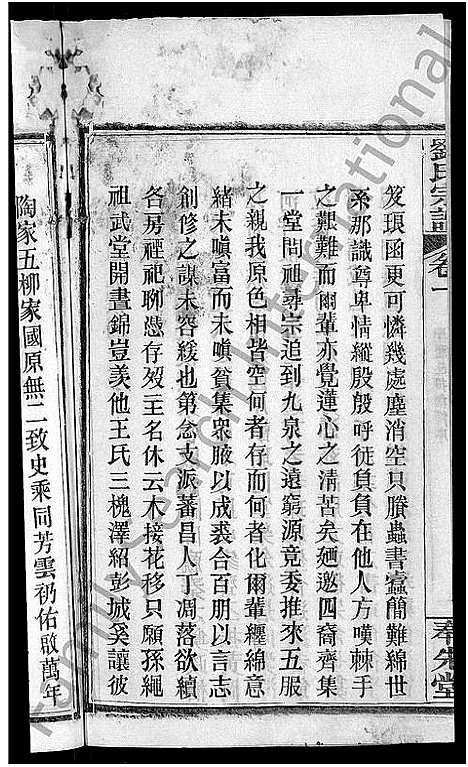 劉氏宗譜 卷一 奉先堂
笈琅函更可憐幾處塵消空只賸蟲書蠹簡難綿世
系那識尊卑情縱殷殷呼徒負負在他人方嘆棘手
之艱難而爾輩亦覺蓮心之清苦矣廼邀四裔齊集
一堂問祖尋宗追到九泉之遠窮源竟委推來五服
之親我原色相皆空何者存而何者化爾輩纒綿意
緒未嗔富而未嗔貧集衆腋以成裘合百朋以言志
創修之謀未容緩也第念支派蕃昌人丁凋落欲續
各房禋祀聊憑存歿主名休云木接花移只願孫繩
祖武堂開晝錦豈羨他王氏三槐澤紹彭城奚讓彼
陶家五柳家國原無二致史乘同芳雲礽佑啟萬年
family search international